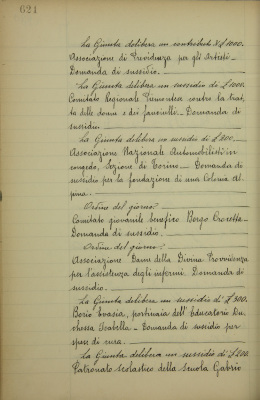 621
La Giunta delibera un contributo di £ 1000.
Associazione di Provvidenza per gli Artisti -
Domanda di sussidio.
La Giunta delibera un sussidio di £ 1000.
Comitato Regionale Piemontese contro la trat,
ta delle donne e dei fanciulli - Domanda di
sussidio.
La Giunta delibera un sussidio di £ 200
Associazione Nazionale Automobilisti in
congedo, Sezione di Torino - Domanda di
sussidio per la fondazione di una Colonia Al,
pina.
Ordine del giorno:
Comitato giovanile Borgo Crocetta -
Domanda di sussidio.
Ordine del giorno:
Associazione Dame della Divina Provvidenza
per l'assistenza degli infermi. Domanda di
sussidio.
La Giunta delibera un sussidio di £ 300.
Bosio Evasia, portinaia dell'Educatorio Du,
chessa Isabella - Domanda di sussidio per
spese di cura.
La Giunta delibera un sussidio di £ 200.
Patronato Scolastico della Scuola Gabrio